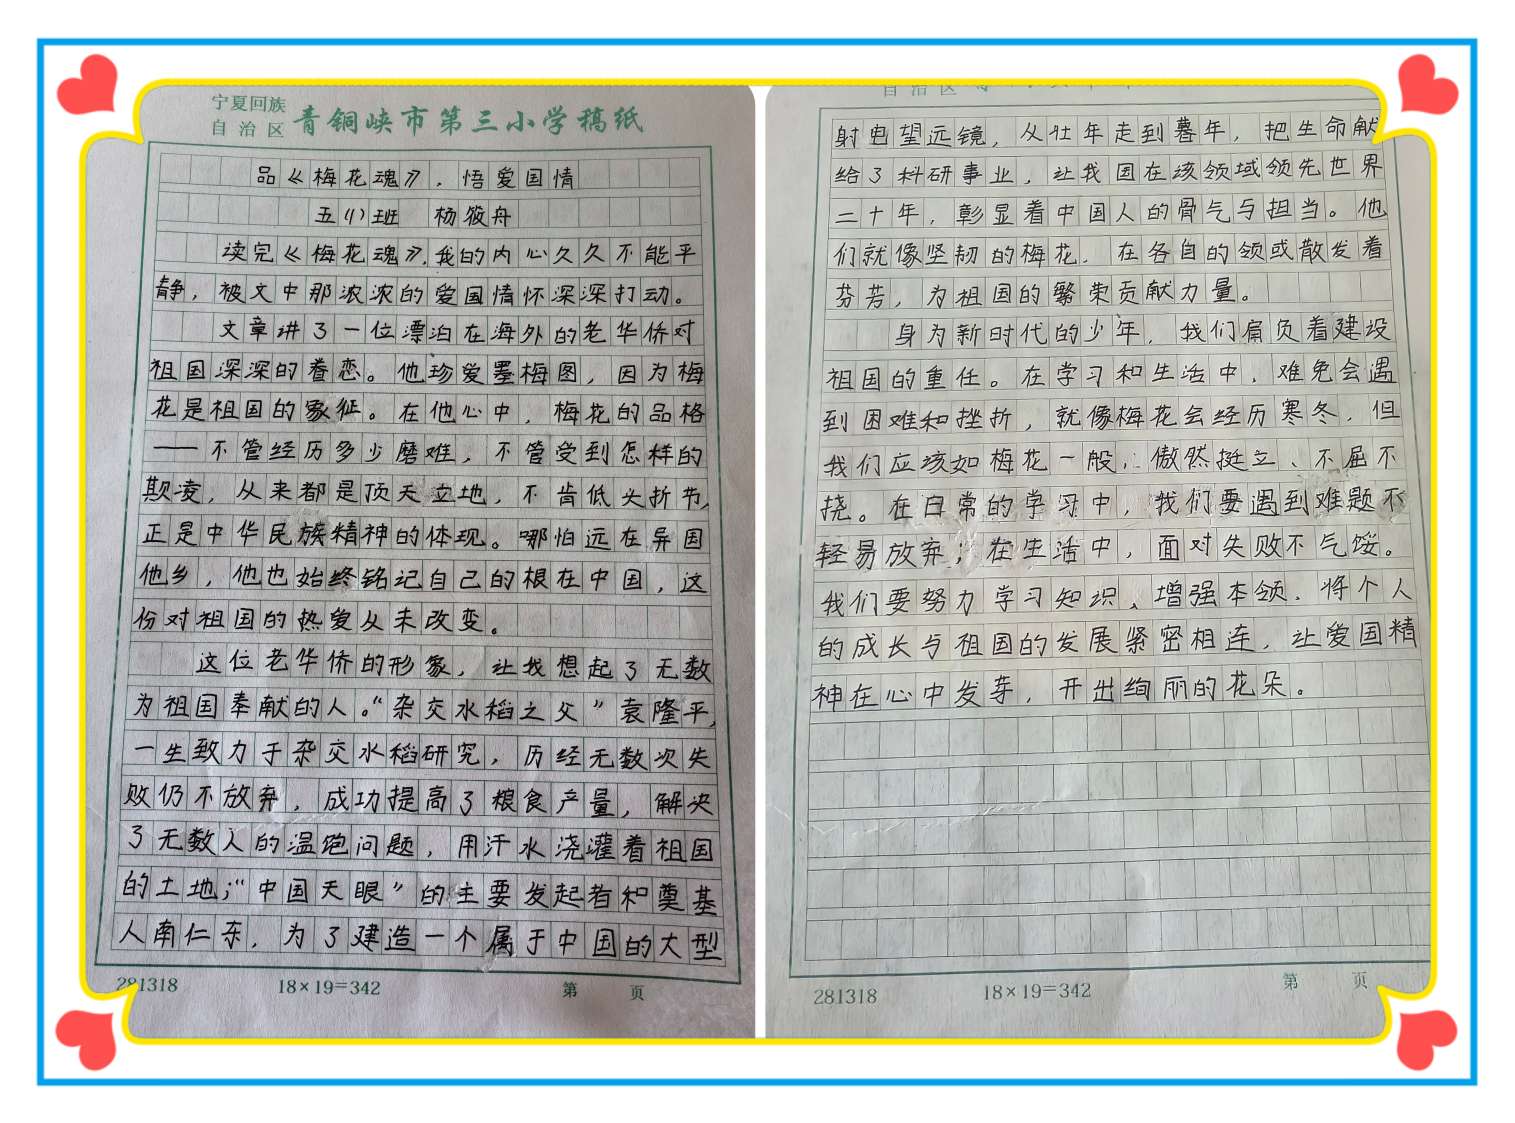 宁夏回族
自治区 青铜峡市第三小学稿纸
品《梅花魂》，悟爱国情
五(1)班 杨筱舟
读完《梅花魂》，我的内心久久不能平
静，被文中那浓浓的爱国情怀深深打动。
文章讲了一位漂泊在海外的老华侨对
祖国深深的眷恋。他珍爱墨梅图，因为梅
花是祖国的象征。在他心中，梅花的品格
——不管经历多少磨难，不管受到怎样的
欺凌，从来都是顶天立地，不肯低头折节，
正是中华民族精神的体现。哪怕远在异国
他乡，他也始终铭记自己的根在中国，这
份对祖国的热爱从未改变。
这位老华侨的形象，让我想起了无数
为祖国奉献的人。“杂交水稻之父”袁隆平，
一生致力于杂交水稻研究，历经无数次失
败仍不放弃，成功提高了粮食产量，解决
了无数人的温饱问题，用汗水浇灌着祖国
的土地；“中国天眼”的主要发起者和奠基
人南仁东，为了建造一个属于中国的大型
281318 18×19=342 第 页
自治区
射电望远镜，从壮年走到暮年，把生命献
给了科研事业，让我国在该领域领先世界
二十年，彰显着中国人的骨气与担当。他
们就像坚韧的梅花，在各自的领或散发着
芬芳，为祖国的繁荣贡献力量。
身为新时代的少年，我们肩负着建设
祖国的重任。在学习和生活中，难免会遇
到困难和挫折，就像梅花会经历寒冬，但
我们应该如梅花一般，傲然挺立、不屈不
挠。在日常的学习中，我们要遇到难题不
轻易放弃；在生活中，面对失败不气馁。
我们要努力学习知识、增强本领，将个人
的成长与祖国的发展紧密相连，让爱国精
神在心中发芽，开出绚丽的花朵。
281318 18×19=342 第 页